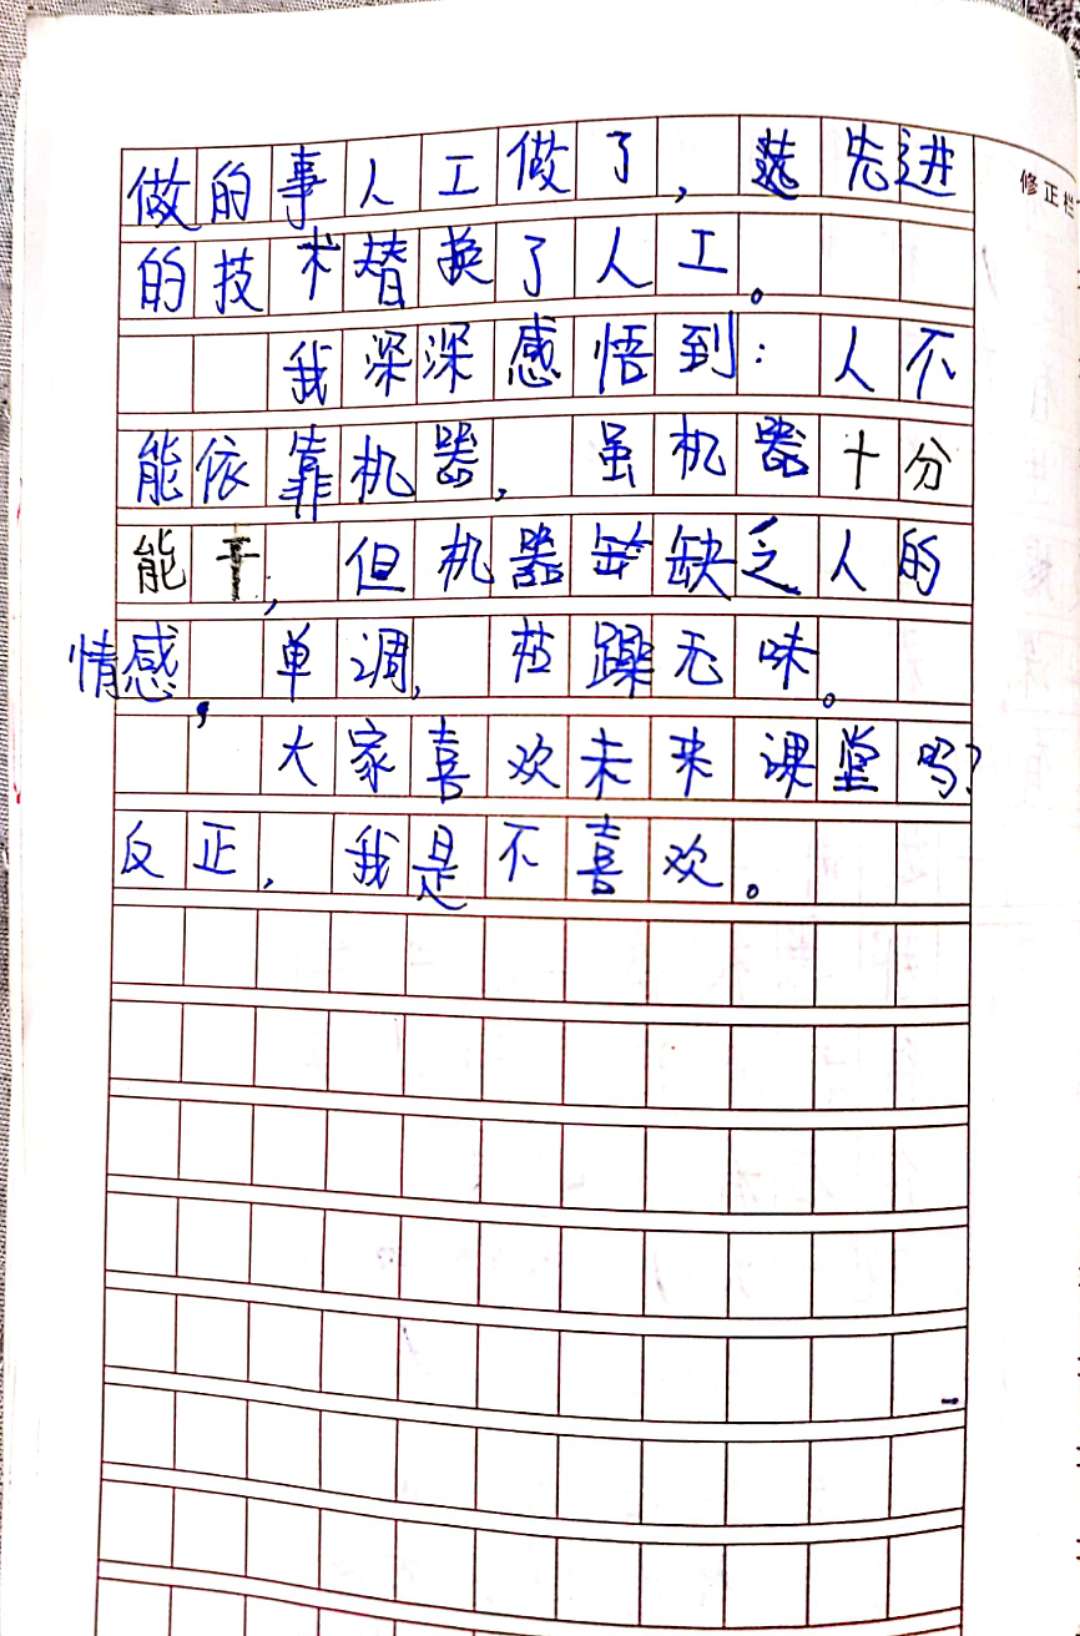 做的事人工做了，先进
的技术替换了人工。
我深深感悟到：人不
能依靠机器，虽机器十分
能干，但机器缺乏人的
情感，单调，枯躁无味。
大家喜欢未来课堂吗？
反正，我是不喜欢。
修正栏